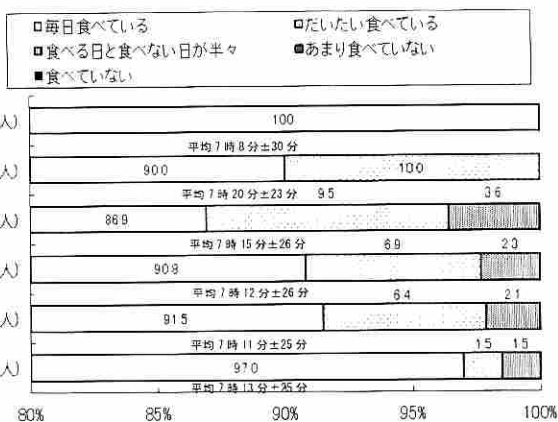 □毎日食べている □だいたい食べている
□食べる日と食べない日が半々 ■あまり食べていない
■食べていない
人) 100
平均7時8分±30分
人) 90.0 10.0
平均7時20分±23分 9.5 3.6
人) 86.9
平均7時15分±26分 6.9 2.3
人) 90.8
平均7時12分±26分 6.4 2.1
人) 91.5
平均7時11分±25分 1.5 1.5
人) 97.0
平均7時13分±25分
80% 85% 90% 95% 100%